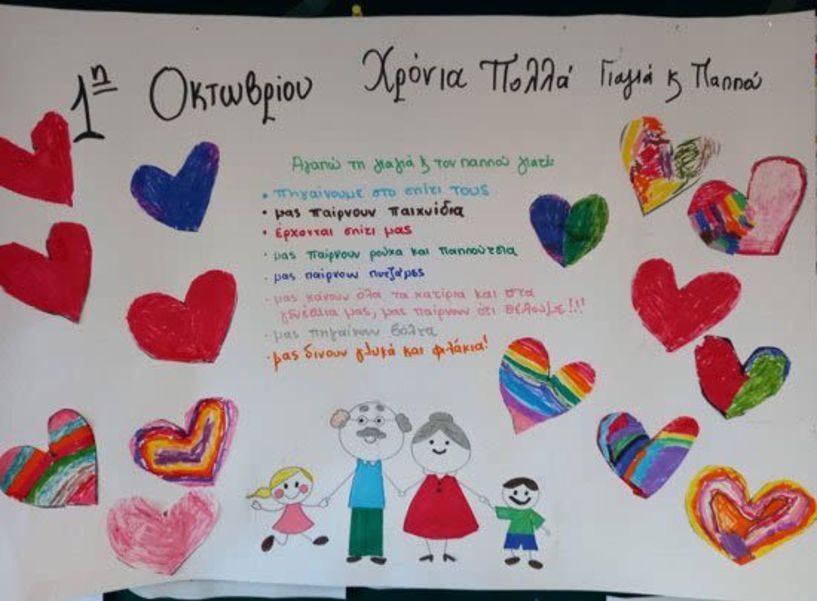 1η Οκτωβρίου Χρόνια Πολλά Γιαγιά κ Παππού
Αγαπώ τη γιαγιά κ τον παππού γιατί:
• πηγαίνουμε στο σπίτι τους
• μας παίρνουν παιχνίδια
• έρχονται σπίτι μας
• μας παίρνουν ρούχα και παππούτσια
• μας παίρνουν πυτζάμες
• μας κάνουν όλα τα χατίρια και στα
γενέθλια μας, μας παίρνουν ότι θέλουμε!!!
• μας πηγαίνουν βόλτα
• μας δίνουν γλυκά και φιλάκια!